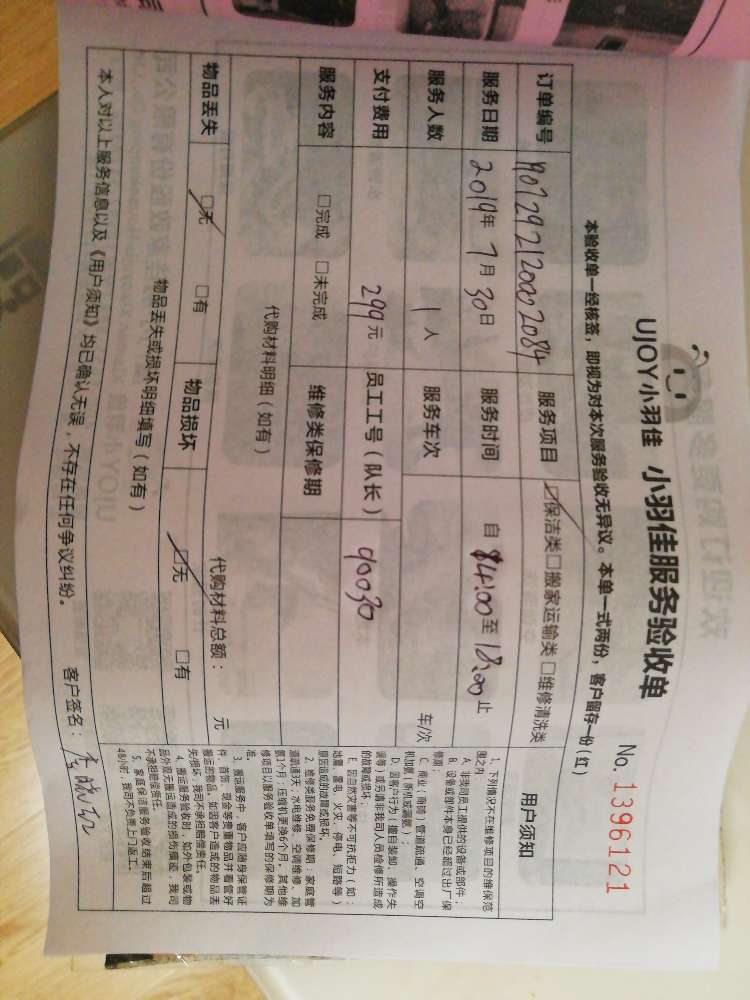 UJOY小羽佳 小羽佳服务验收单
No. 1396121
本验收单一经核签，即视为对本次服务验收无异议。本单一式两份，客户留存一份（红）
订单编号 服务项目 ☑保洁类□搬家运输类□维修清洗类
服务日期 2019年7月30日 服务时间 自 14:00至 18:00止
服务人数 1人 服务车次 车/次
支付费用 299元 员工工号（队长） 90030
服务内容 □完成 □未完成 维修类保修期
代购材料明细（如有） 代购材料总额： 元
物品丢失 ☑无 □有 物品损坏 ☑无 □有
物品丢失或损坏明细填写（如有）
本人对以上服务信息以及《用户须知》均已确认无误，不存在任何争议纠纷。 客户签名：
用户须知
1、下列情况不在维修项目的维保范
围之内
A、非我司员工提供的设备或部件；
B、设备或部件本身已经超过出厂保
修期
C、商业（商铺）管道疏通、空调空
机加氟（新机或漏氟）；
D、因客户行为（擅自装卸、操作失
误等）或另请非我司人员检修所造成
的故障或损坏
E、因自然灾害等不可抗拒力（如：
地震、雷电、火灾、停电、短路等）
原因造成的故障或损坏。
2、维修类服务免费保修期：家庭管
道疏通3天，水电维修、空调维修、加
氟1个月；压缩机更换6个月，其他维
修项目以服务验收单填写的保修期为
准。
3、搬运服务中，客户应随身保管证
件、首饰、现金等贵重物品并看管好
搬运的物品，如因客户造成的物品丢
失/损坏，我司不承担赔偿责任。
4、搬运服务验收时，如外包装或物
品外观无搬运造成的损伤痕迹，我司
不承担赔偿责任。
5、家庭保洁服务验收结束后超过
48小时，我司不负责上门返工。